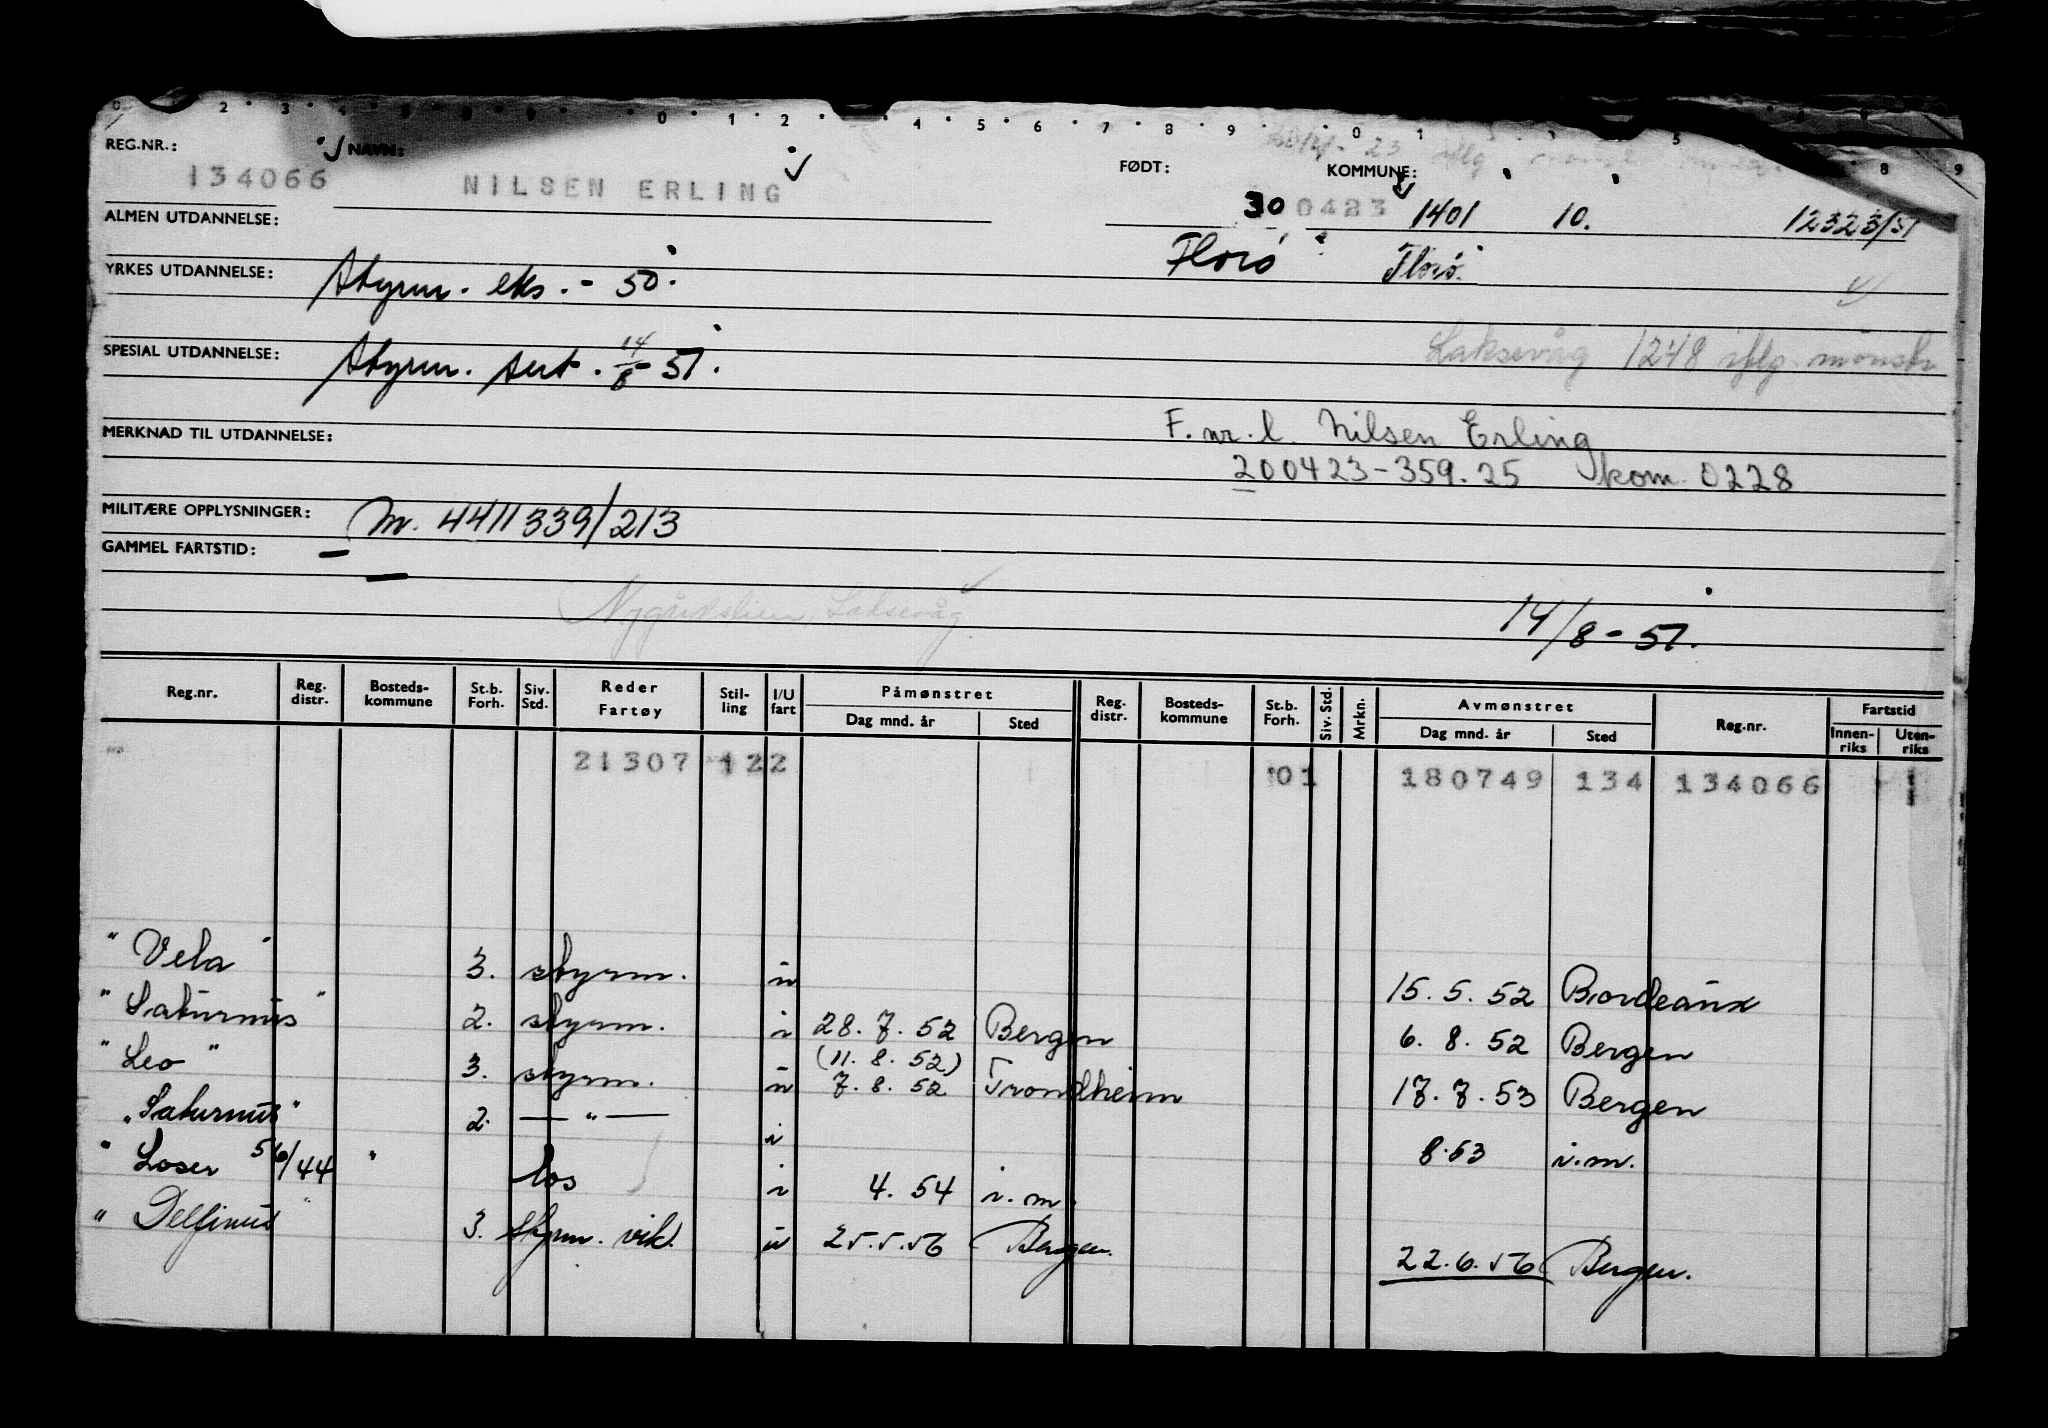 0 2 3 4 0 1 2 4 5 6 7 8 9 0 1 5 8 9
REG.NR.: NAVN: FØDT: KOMMUNE:
134066 NILSEN ERLING 30 0423 1401 10. 12323/51
ALMEN UTDANNELSE: Florø Florø.
YRKES UTDANNELSE: Styrm. eks. - 50.
SPESIAL UTDANNELSE: Styrm. sert. 14/8-51. Laksevåg 1248 iflg. mønstr
MERKNAD TIL UTDANNELSE: F. nr. l. Nilsen Erling
200423-359.25 kom. 0228
MILITÆRE OPPLYSNINGER: M. 4411339/213
GAMMEL FARTSTID: —
—
Laksevåg 14/8-51.
Reg.nr. Reg. distr. Bosteds-kommune St.b. Forh. Siv. Std. Reder Fartøy Stil-ling I/U fart Påmønstret Dag mnd. år Sted Reg. distr. Bosteds-kommune St.b. Forh. Siv. Std. Mrkn. Avmønstret Dag mnd. år Sted Reg.nr. Fartstid Innen-riks Uten-riks
21307 122 01 180749 134 134066 1
"Vela" 3. styrm. u 15.5.52 Bordeaux
"Saturnus" 2. styrm. i 28.7.52 Bergen 6.8.52 Bergen
(11.8.52)
"Leo" 3. styrm. u 7.8.52 Trondheim 17.7.53 Bergen
"Saturnus" 2. — " — i 8.53 i.m.
"Loser 56/44" los i 4.54 i.m.
"Delfinus" 3. styrm. vik. u 25.5.56 Bergen. 22.6.56 Bergen.